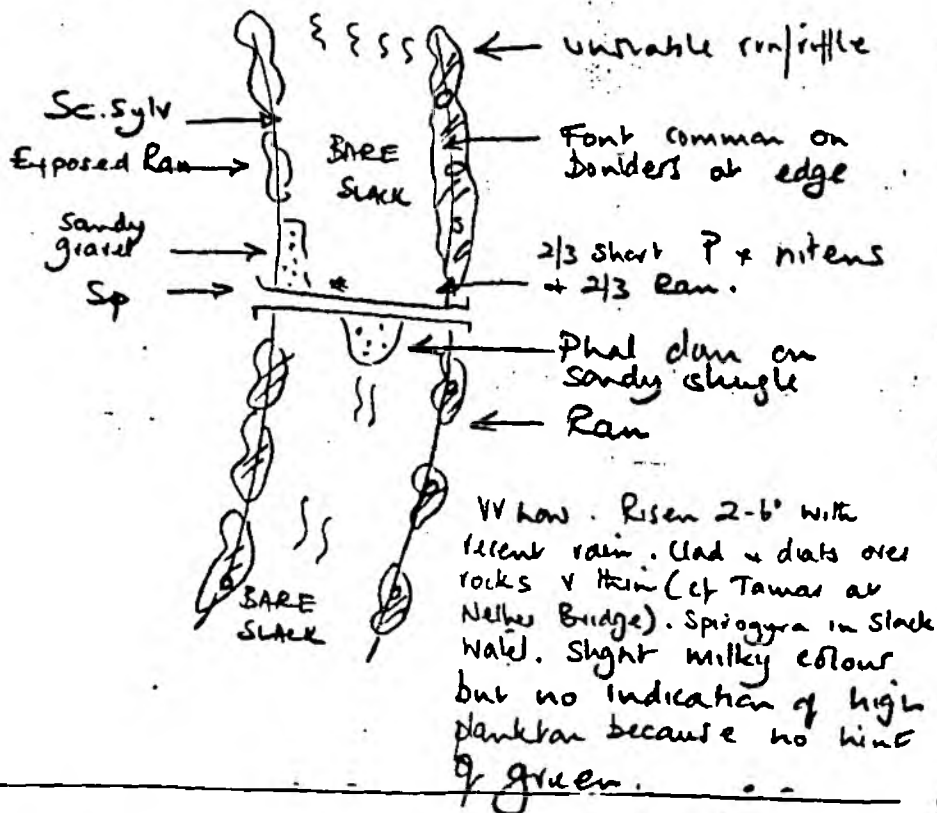 unstable run/riffle
Sc. sylv
Exposed Ran
BARE
SLACK
Font common on
boulders at edge
sandy
gravel
Sp
2/3 short P x nitens
+ 2/3 Ran.
Phal clam on
sandy shingle
Ran
VV Low. Risen 2-6" with
recent rain. Clad + diats over
rocks v thin (cf Tamar at
Nether Bridge). Spirogyra in Slack
Water. Slight milky colour
but no indication of high
plankton because no hint
of green.
BARE
SLACK